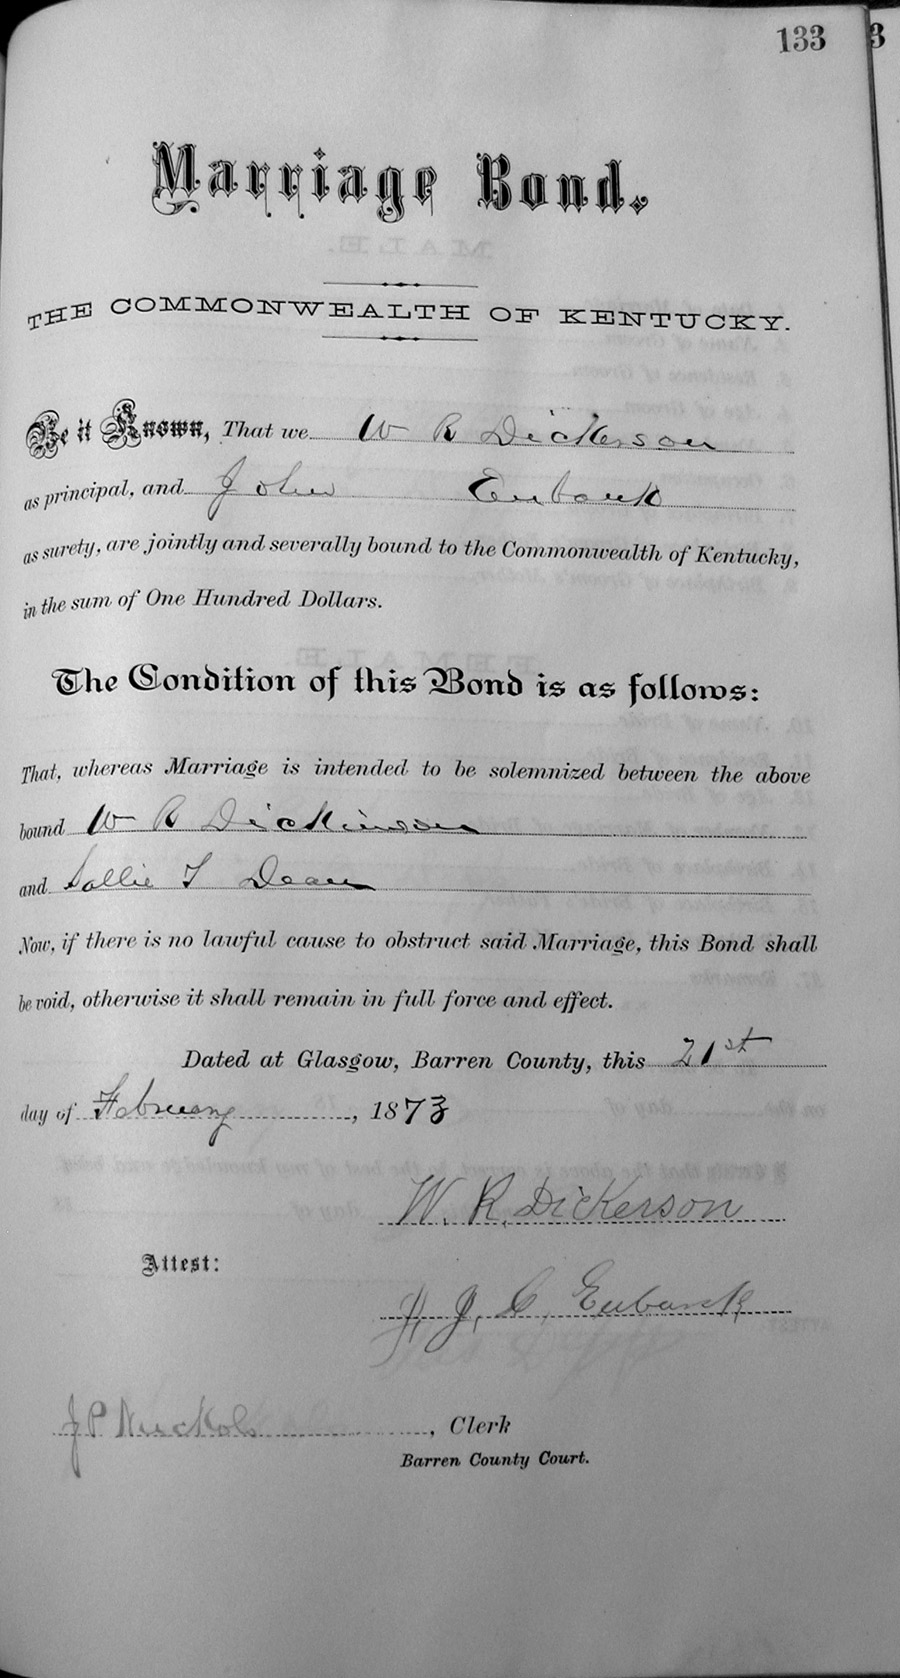 133
3
Marriage Bond.
THE COMMONWEALTH OF KENTUCKY.
Be it Known, That we W R Dickerson
as principal, and John Eubank
as surety, are jointly and severally bound to the Commonwealth of Kentucky,
in the sum of One Hundred Dollars.
The Condition of this Bond is as follows:
That, whereas Marriage is intended to be solemnized between the above
bound W R Dickinson
and Sallie T Dean
Now, if there is no lawful cause to obstruct said Marriage, this Bond shall
be void, otherwise it shall remain in full force and effect.
Dated at Glasgow, Barren County, this 21st
day of February, 1873
W. R. Dickerson
Attest:
J. J. C. Eubank
J P Nuckols, Clerk
Barren County Court.